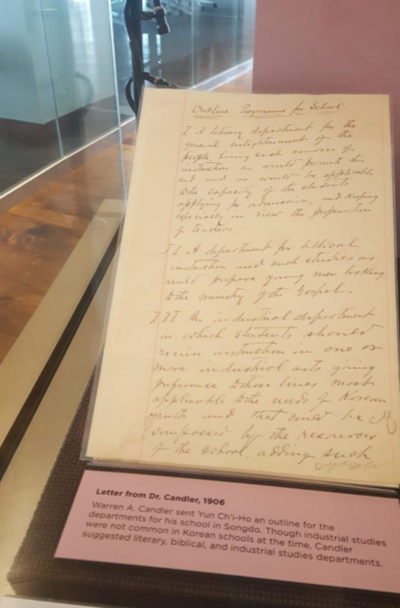 Outline Programme for School.
I A literary department for the
general enlightenment of the
people having such courses of
instruction as would promote this
end and as would be applicable
to the capacity of the students
applying for admission, and keeping
especially in view the preparation
of teachers.
II A department for biblical
instruction and such studies as
would prepare young men looking
to the ministry of the Gospel.
III An industrial department
in which students should
receive instruction in one or
more industrial arts giving
preference to those lines most
applicable to the needs of Korean
youth and that could be
compassed by the resources
of the School, adding such
Letter from Dr. Candler, 1906
Warren A. Candler sent Yun Ch'i-Ho an outline for the
departments for his school in Songdo. Though industrial studies
were not common in Korean schools at the time, Candler
suggested literary, biblical, and industrial studies departments.